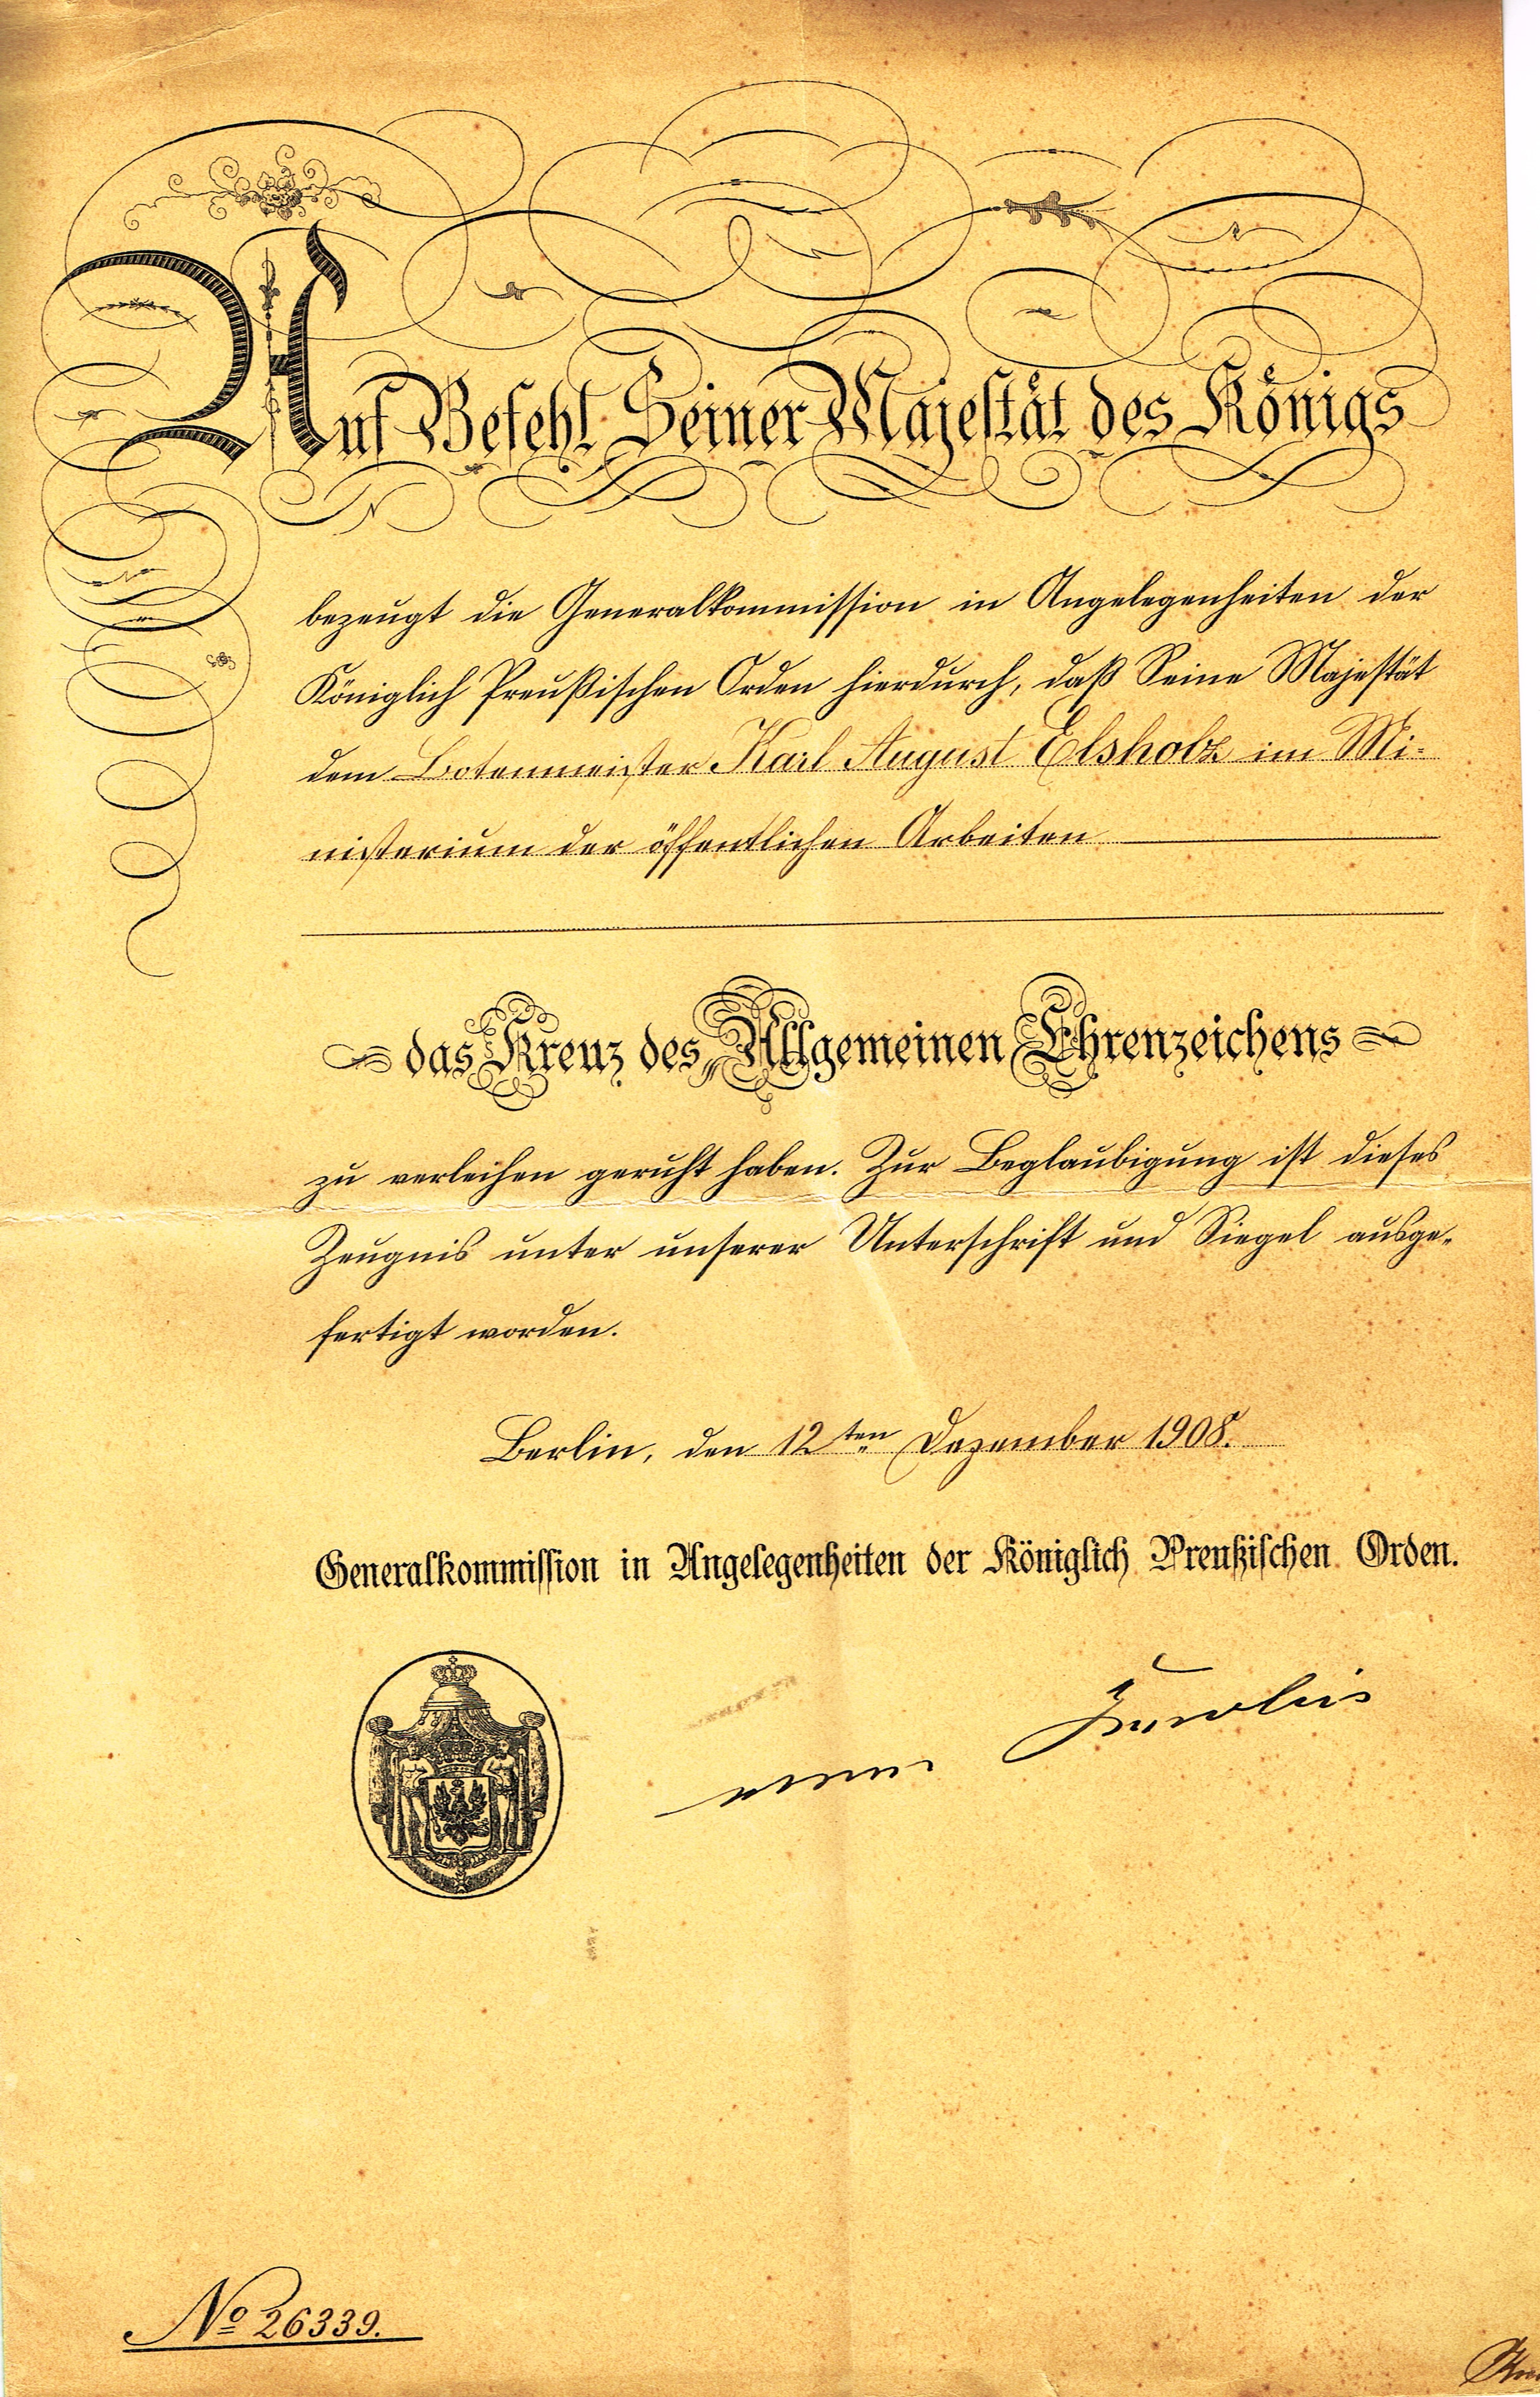 Auf Befehl Seiner Majestät des Königs
bezeugt die Generalkommission in Angelegenheiten der
Königlich Preußischen Orden hierdurch, daß Seine Majestät
dem Botenmeister Karl August Elsholz im Mi-
nisterium der öffentlichen Arbeiten
das Kreuz des Allgemeinen Ehrenzeichens
zu verleihen geruht haben. Zur Beglaubigung ist dieses
Zeugnis unter unserer Unterschrift und Siegel ausge-
fertigt worden.
Berlin, den 12ten Dezember 1908.
Generalkommission in Angelegenheiten der Königlich Preußischen Orden.
No 26339.